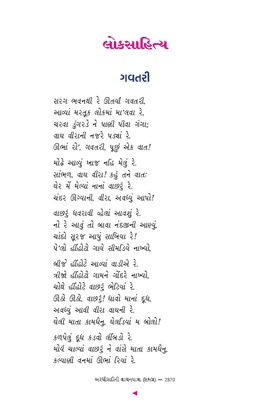 લોકસાહિત્ય
ગવતરી
સરગ ભવનથી રે ઊતર્યાં ગવતરી,
આવ્યાં મરતૂક લોકમાં મા'લવા રે,
ચરવા ડુંગરડે ને પાણી પીવા ગંગા;
વાઘ વીરાની નજરે પડ્યાં રે.
ઊભાં રો', ગવતરી, પૂછું એક વાત!
મોઢે આવ્યું ખાજ નહિ મેલું રે.
સાંભળ, વાઘ વીરા! કહું તને વાત:
ઘેર મેં મેલ્યાં નાનાં વાછરું રે.
ચંદર ઊગ્યાની, વીરા, અવધ્યું આપો!
વાછરું ધવરાવી વ્હેલાં આવશું રે.
નો રે આવું તો બાવા નંદજીની આણ્યું,
ચાંદો સૂરજ આપું સાખિયા રે!
પે'લો હીંહોટો ગાયે સીમડિયે નાખ્યો,
બીજે હીંહોટે આવ્યાં વાડીએ રે.
ત્રીજો હીંહોટો ગામને ગોંદરે નાખ્યો,
ચોથે હીંહોટે વાછરું ભેટિયાં રે.
ઊઠો ઊઠો, વાછરું! ધાવો માનાં દૂધ,
અવધ્યું આવી વીરા વાઘની રે.
ઘેલી માતા કામધેનુ, ઘેલડિયાં મ બોલો!
કળપેલું દૂધ કડવો લીંબડો રે.
મોર્ય ચાલ્યાં વાછરું ને વાંસે માતા કામધેનુ,
કલ્યાણી વનમાં ઊભાં રિયાં રે.